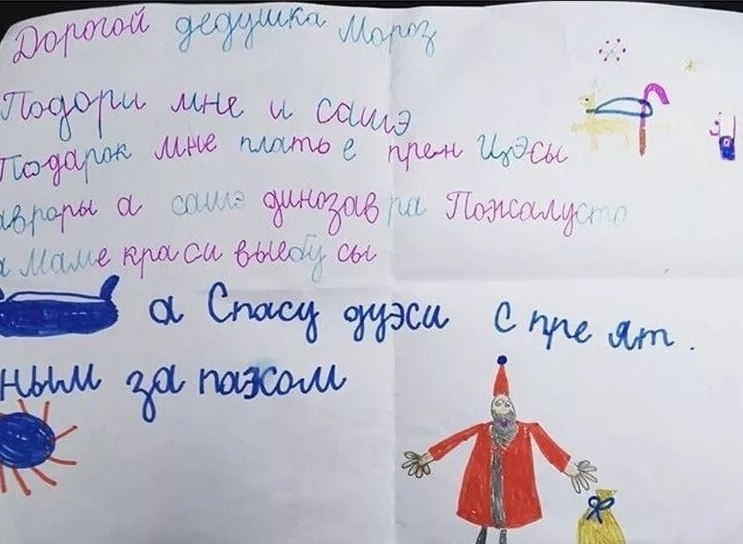 Дорогой дедушка Мороз
Подори мне и сашэ
Подарок мне плать е прен цэсы
авроры а сашэ динозав ра Пожалусто
а Маме краси выебу сы
а Спасу дуэси с пре ят.
ным за пахом